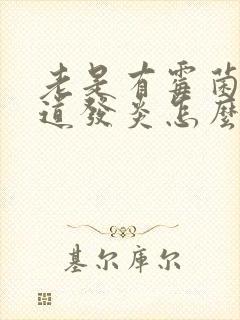 老是有霉菌
道發炎怎麼
基尔库尔